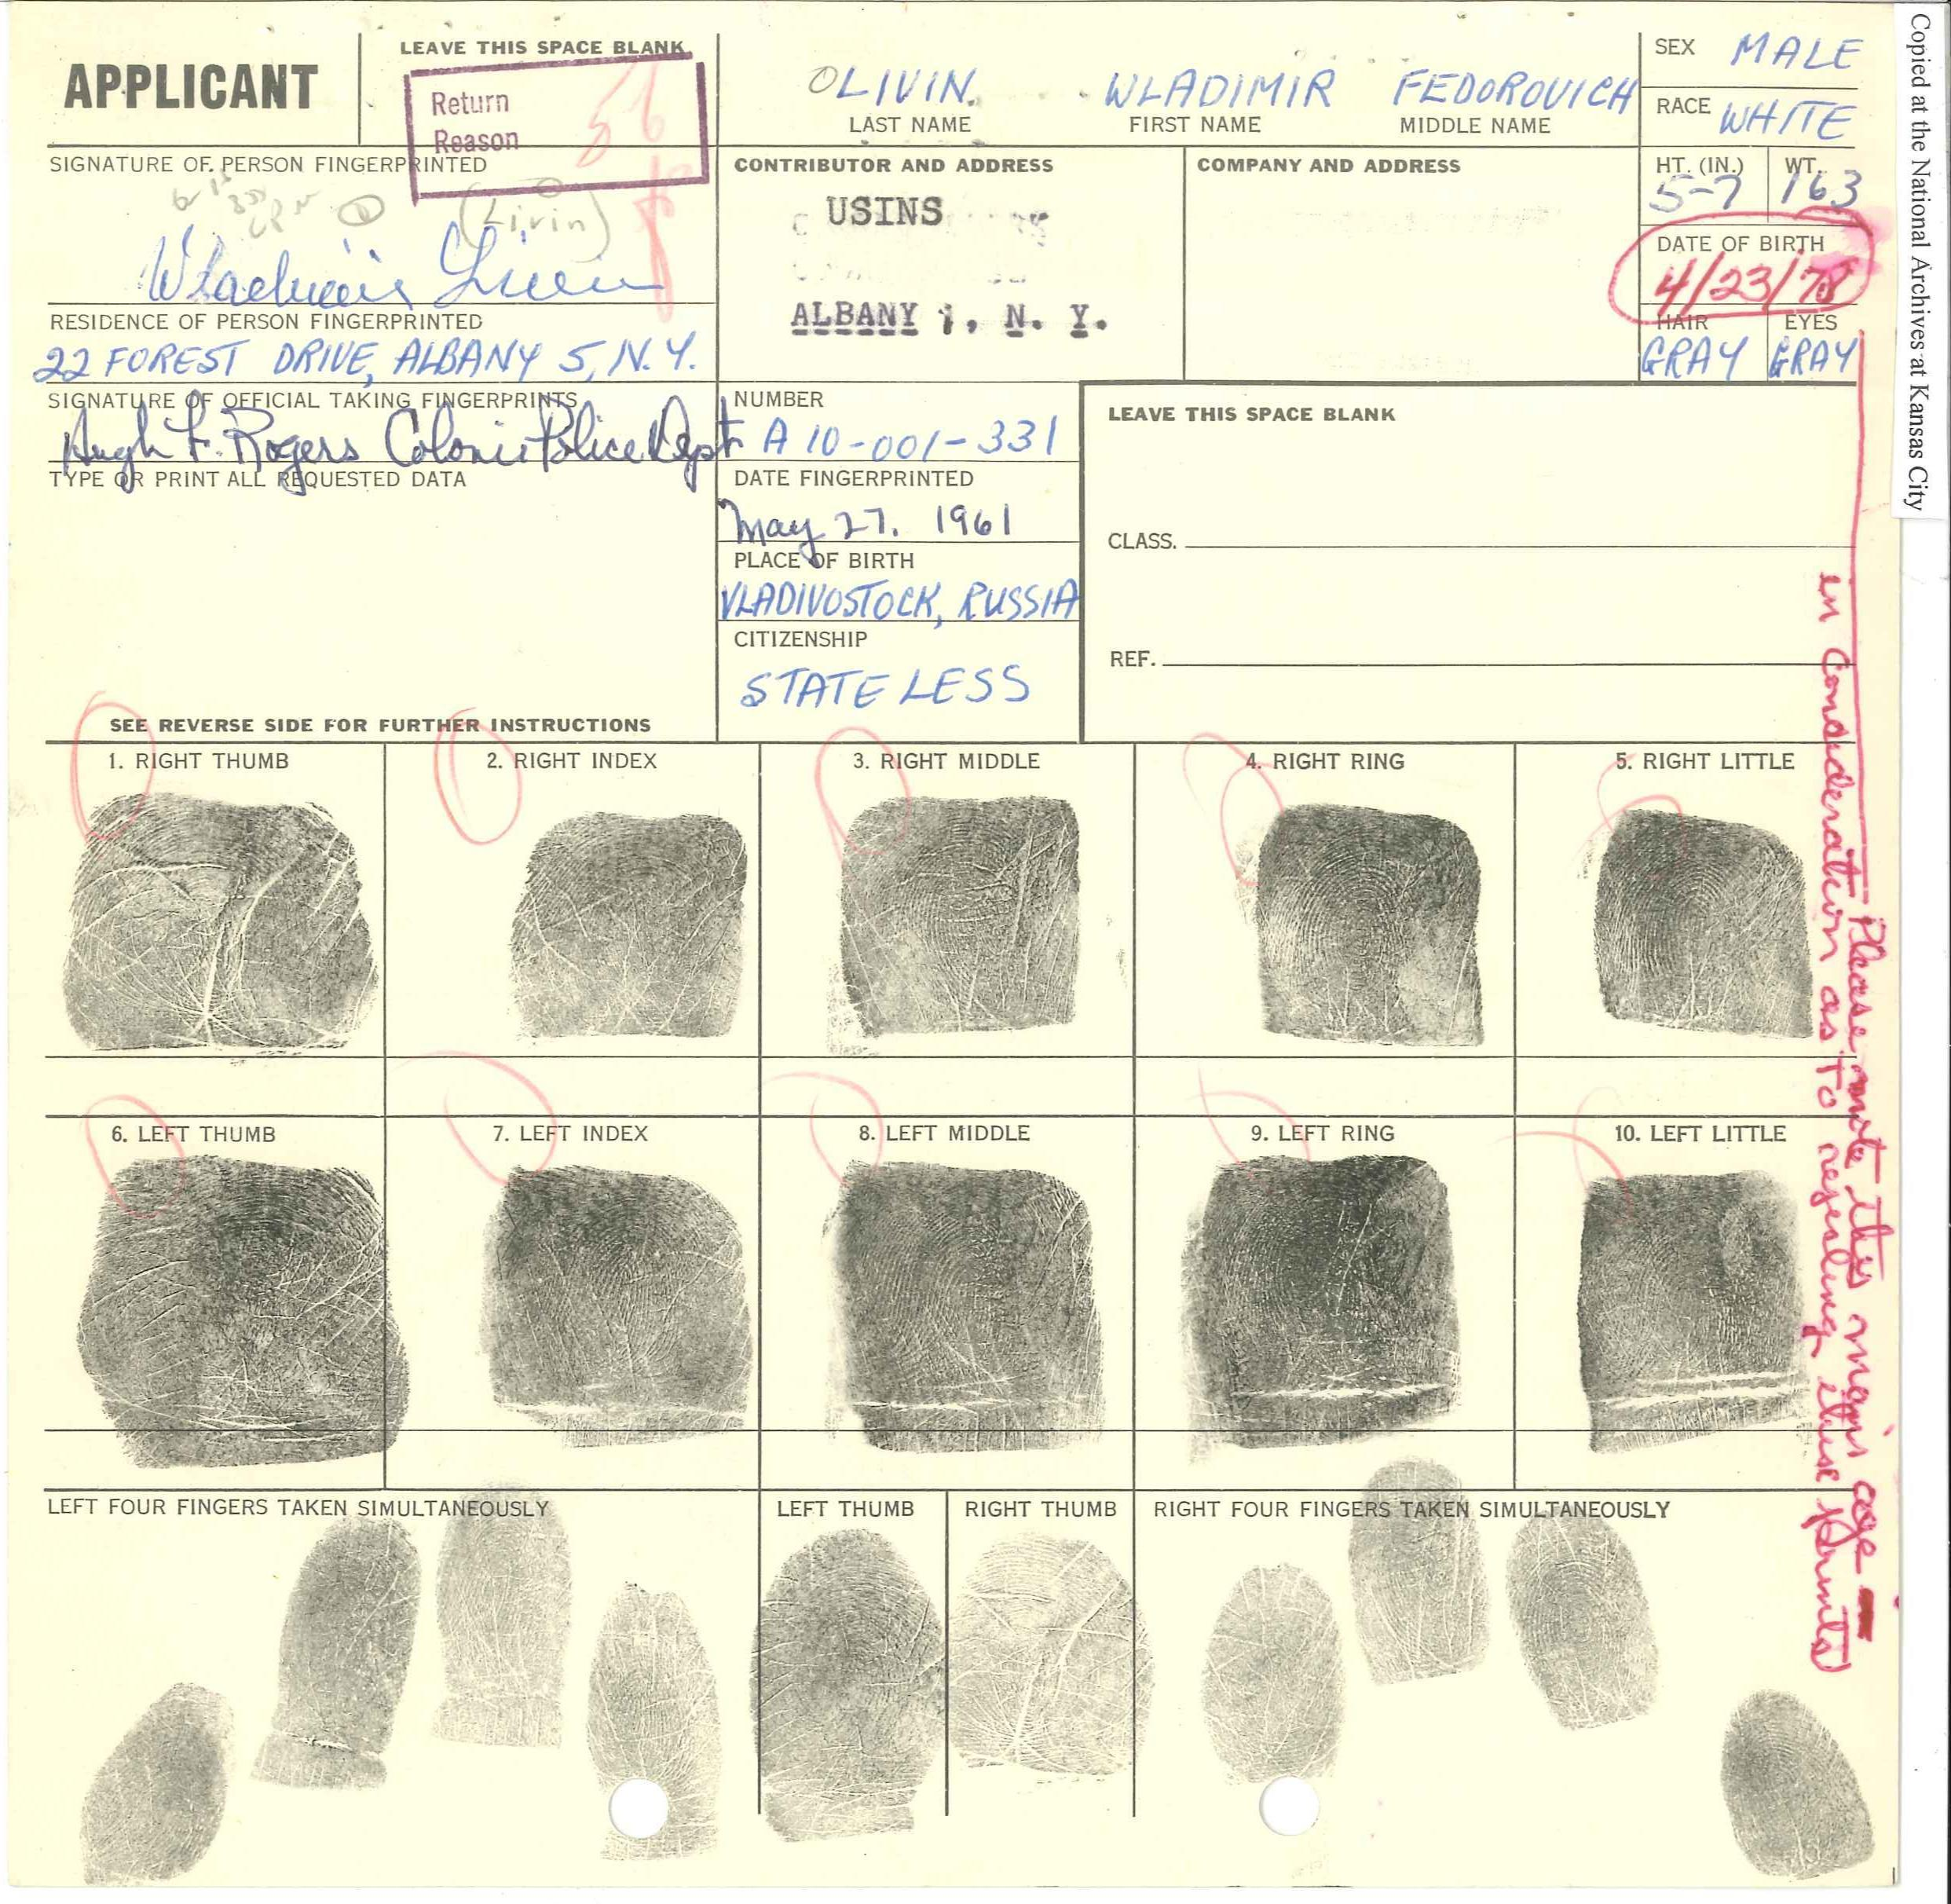 APPLICANT
LEAVE THIS SPACE BLANK
Return
Reason
OLIVIN WLADIMIR FEDOROVICH
LAST NAME FIRST NAME MIDDLE NAME
SEX MALE
RACE WHITE
HT. (IN.) WT.
5-7 163
DATE OF BIRTH
4/23/78
HAIR EYES
GRAY GRAY
SIGNATURE OF PERSON FINGERPRINTED
(Livin)
Wladimir Livin
CONTRIBUTOR AND ADDRESS
USINS
ALBANY 1, N. Y.
COMPANY AND ADDRESS
RESIDENCE OF PERSON FINGERPRINTED
22 FOREST DRIVE, ALBANY 5, N.Y.
SIGNATURE OF OFFICIAL TAKING FINGERPRINTS
Hugh F. Rogers Colonie Police Dept
TYPE OR PRINT ALL REQUESTED DATA
NUMBER
A 10-001-331
DATE FINGERPRINTED
May 27. 1961
PLACE OF BIRTH
VLADIVOSTOCK, RUSSIA
CITIZENSHIP
STATELESS
LEAVE THIS SPACE BLANK
CLASS.
REF.
SEE REVERSE SIDE FOR FURTHER INSTRUCTIONS
1. RIGHT THUMB
2. RIGHT INDEX
3. RIGHT MIDDLE
4. RIGHT RING
5. RIGHT LITTLE
6. LEFT THUMB
7. LEFT INDEX
8. LEFT MIDDLE
9. LEFT RING
10. LEFT LITTLE
LEFT FOUR FINGERS TAKEN SIMULTANEOUSLY
LEFT THUMB
RIGHT THUMB
RIGHT FOUR FINGERS TAKEN SIMULTANEOUSLY
Please note this man's age -
in consideration as to rejecting these prints
Copied at the National Archives at Kansas City